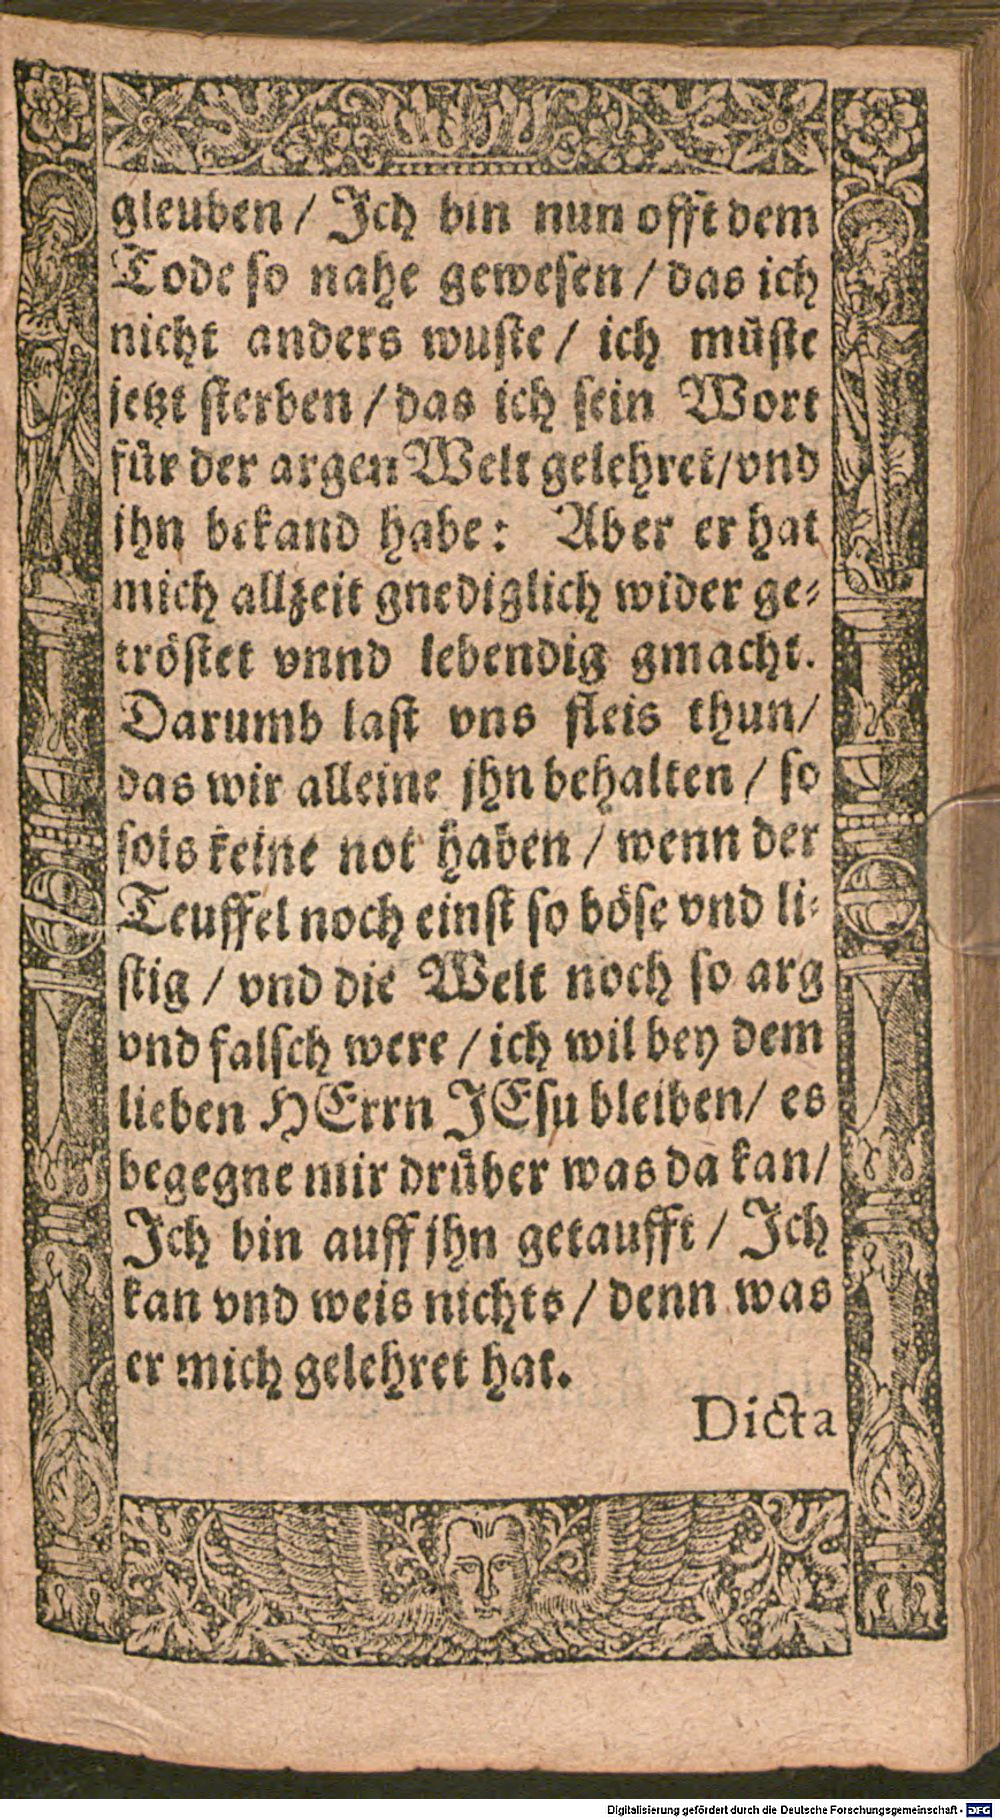 gleuben / Ich bin nun offt dem
Tode so nahe gewesen / das ich
nicht anders wuste / ich müste
jetzt sterben / das ich sein Wort
für der argen Welt gelehret/vnd
jhn bekand habe: Aber er hat
mich allzeit gnediglich wider ge-
tröstet vnnd lebendig gmacht.
Darumb last vns fleis thun/
das wir alleine jhn behalten / so
sols keine not haben / wenn der
Teuffel noch einst so böse vnd li-
stig / vnd die Welt noch so arg
vnd falsch were / ich wil bey dem
lieben HErrn JEsu bleiben/ es
begegne mir drüber was da kan/
Ich bin auff jhn getaufft / Ich
kan vnd weis nichts / denn was
er mich gelehret hat.
Dicta
Digitalisierung gefördert durch die Deutsche Forschungsgemeinschaft - DFG